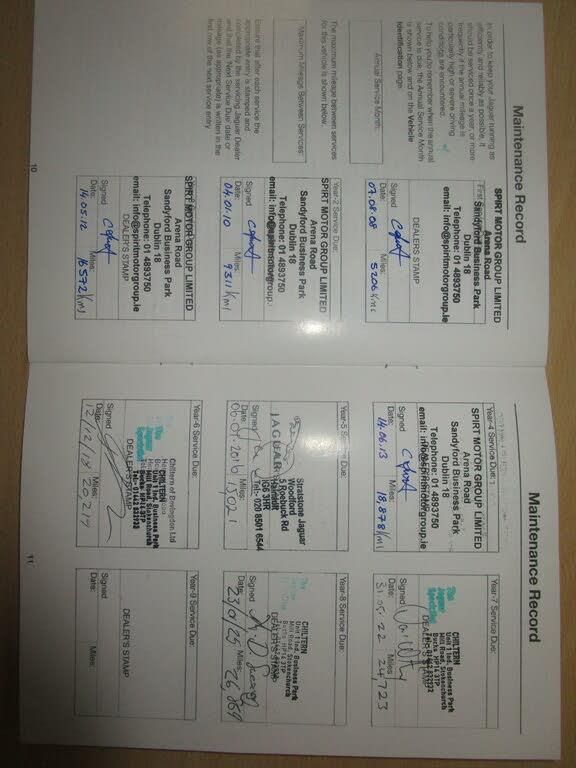 Maintenance Record
In order to keep your Jaguar running as
efficiently and reliably as possible, it
should be serviced once a year, or more
frequently if the annual mileage is
particularly high or severe driving
conditions are encountered.
To help you remember when the annual
service is due, the Annual Service Month
is shown below and on the Vehicle
Identification page.
Annual Service Month:
The maximum mileage between services
for this vehicle is shown below.
Maximum Mileage Between Services:
Ensure that after each service the
appropriate entry is stamped and
completed by the servicing Jaguar Dealer
and that the 'Next Service Due' date or
mileage (as appropriate) is written in the
first row of the next service entry.
SPIRT MOTOR GROUP LIMITED
Arena Road
Sandyford Business Park
Dublin 18
Telephone: 01 4893750
email: info@spiritmotorgroup.ie
DEALER'S STAMP
Signed
Date: 07.08.08 Miles: 5706 Kms
Year-2 Service Due:
SPIRT MOTOR GROUP LIMITED
Arena Road
Sandyford Business Park
Dublin 18
Telephone: 01 4893750
email: info@spiritmotorgroup.
Signed
Date: 04.01.10 Miles: 9311 Kml
SPIRT MOTOR GROUP LIMITED
Arena Road
Sandyford Business Park
Dublin 18
Telephone: 01 4893750
email: info@spiritmotorgroup.ie
DEALER'S STAMP
Signed
Date: 14.05.12 Miles: 16572 Kml
10
Maintenance Record
Year-4 Service Due:
SPIRT MOTOR GROUP LIMITED
Arena Road
Sandyford Business Park
Dublin 18
Telephone: 01 4893750
email: info@spiritmotorgroup.ie
Signed
Date: 14.06.13 Miles: 18,878 Kml
Year-5 Service Due:
Stratstone Jaguar
Woodford
5 Roebuck Rd
Hainault
IG6 3HR
Tel: 020 8501 6544
JAGUAR
Signed
Date: 2016 Miles: 15021
Year-6 Service Due:
Chiltern of Bovingdon Ltd
The
Jaguar
Specialist
CHILTERN
Unit 1 Ind. Business Park
Mill Road, Stokenchurch
Bucks HP14 3TP
DEALER'S STAMP
Signed
Date: 12/12/18 Miles: 20217
Year-7 Service Due:
The
Jaguar
Specialist
CHILTERN
Unit 1 Ind. Business Park
Mill Road, Stokenchurch
Bucks HP14 3TP
DEALER'S STAMP
Signed
Date: 31.05.22 Miles: 24,723
Year-8 Service Due:
CHILTERN
Unit 1 Ind. Business Park
Mill Road, Stokenchurch
Bucks HP14 3TP
DEALER'S STAMP
Signed
Date: Miles: 26,859
Year-9 Service Due:
DEALER'S STAMP
Signed
Date: Miles:
11